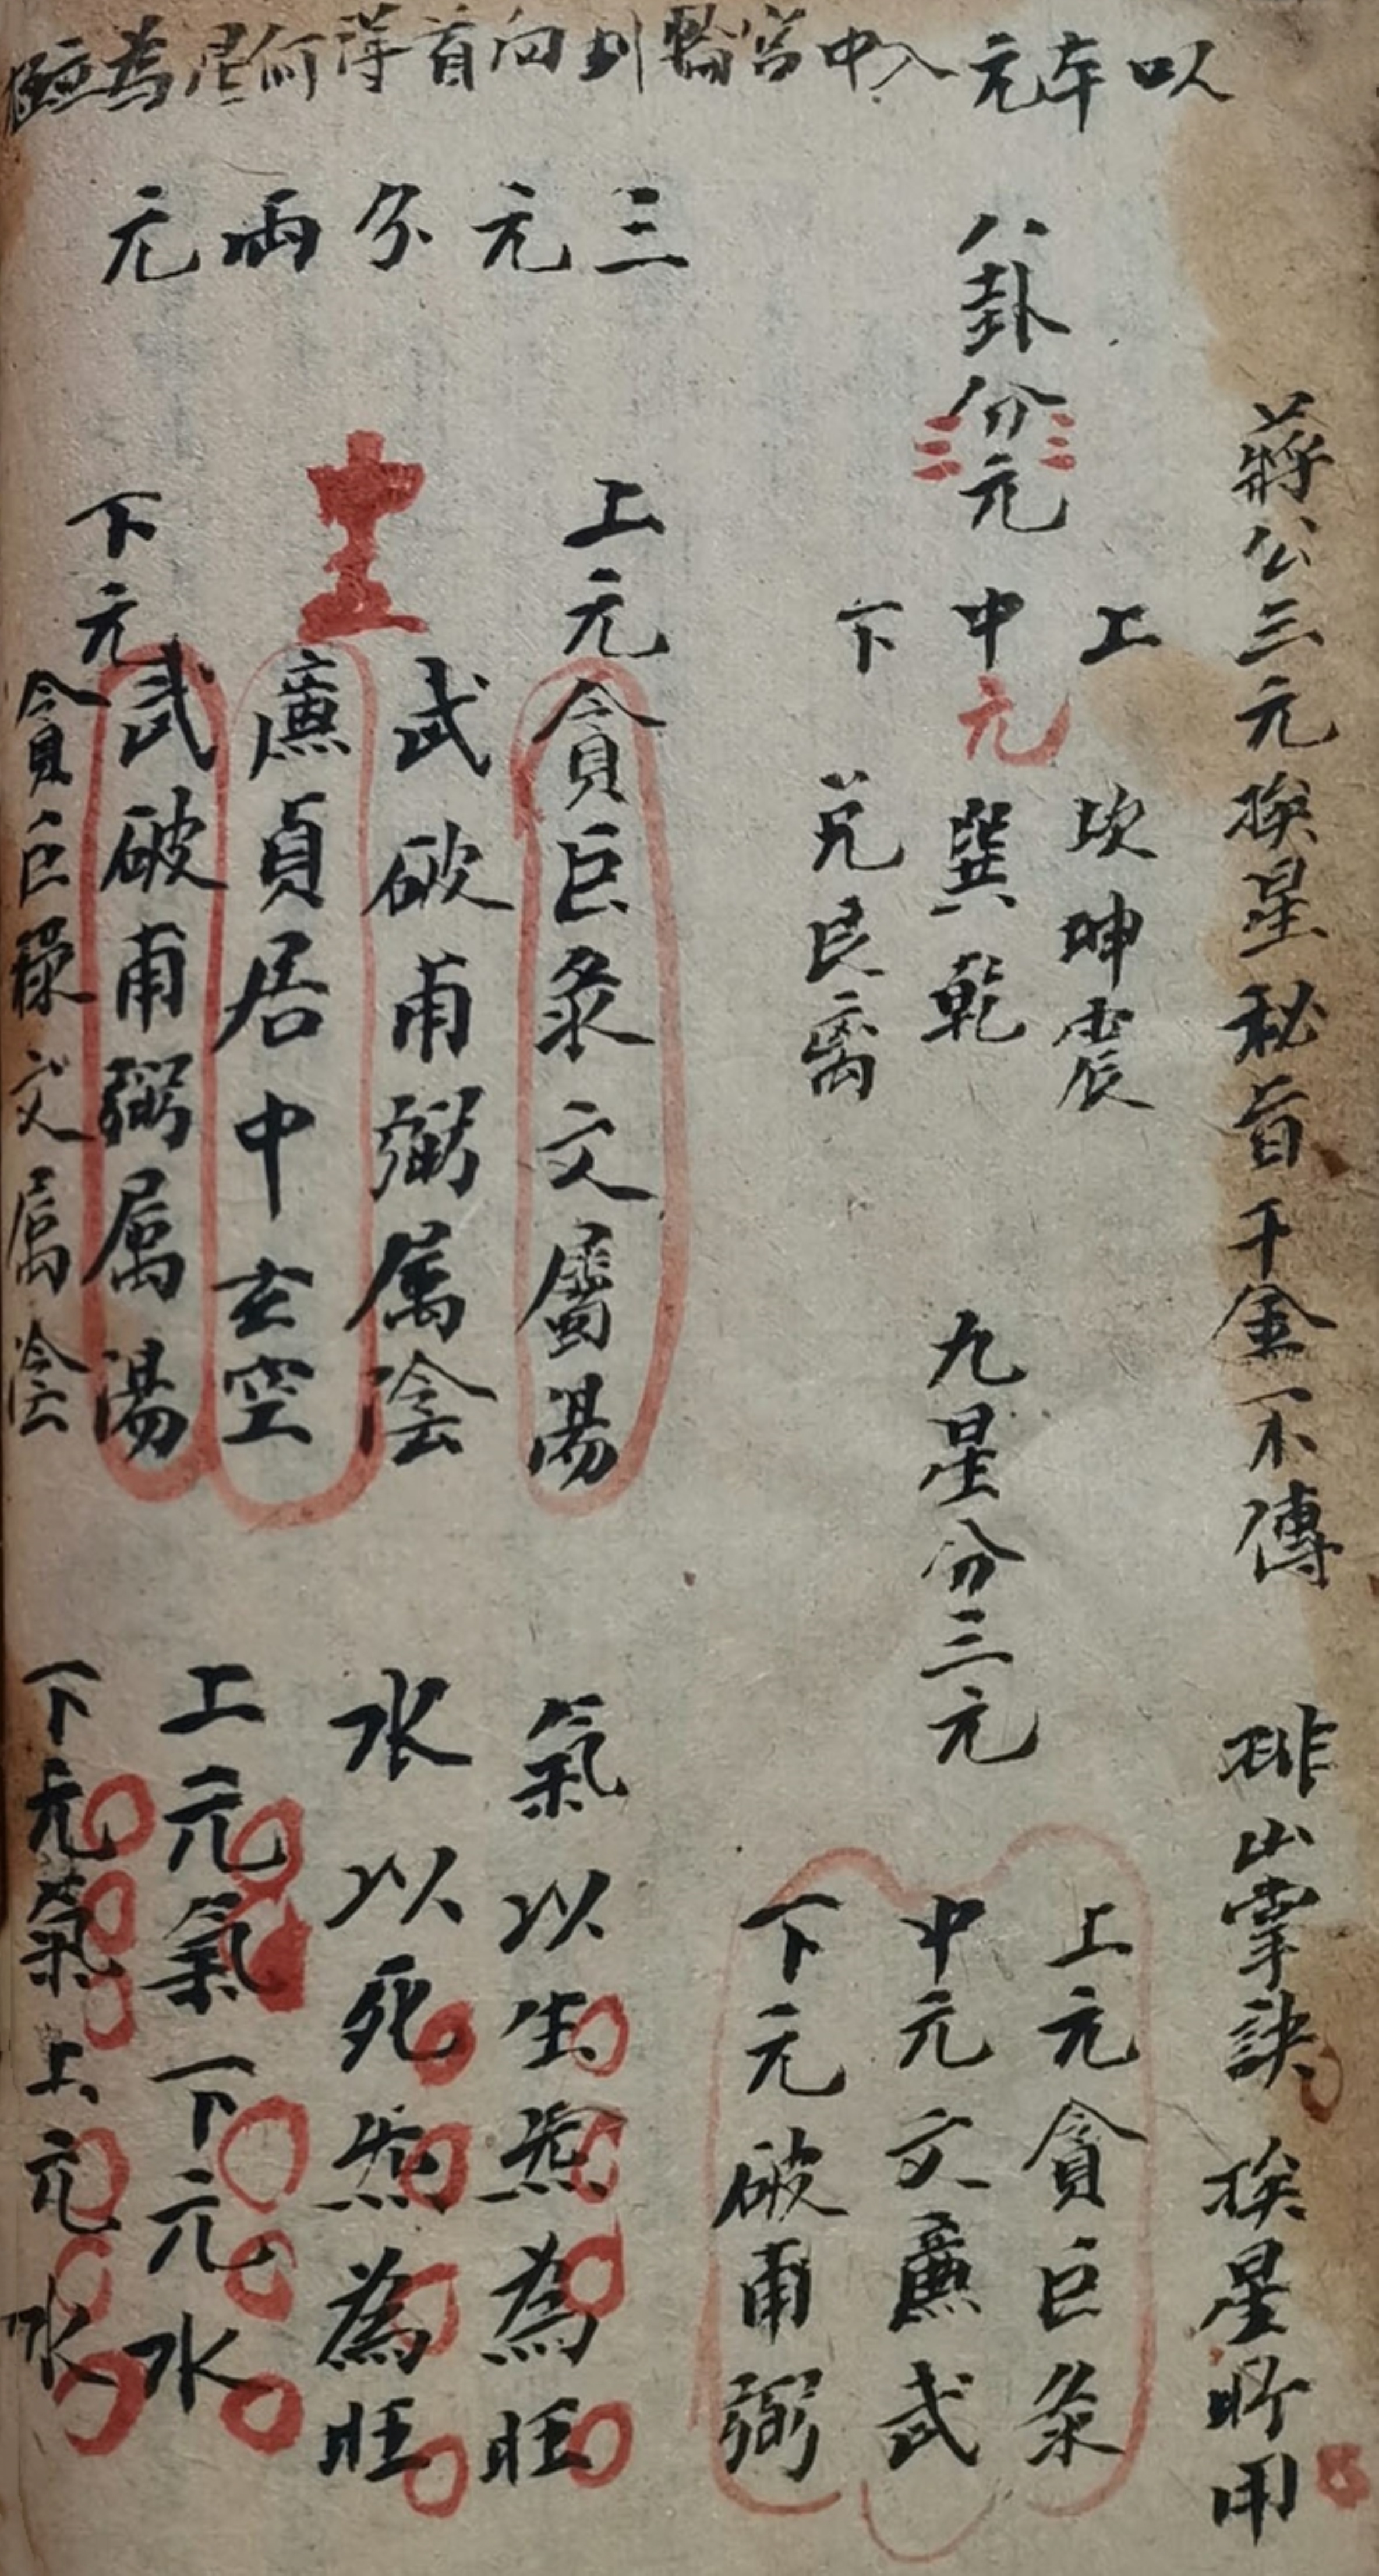 以本元入中宮輪到向首得何星為
蔣公三元挨星秘旨千金不傳
排山掌訣
挨星所用
八卦分元
上 坎坤震
中元 巽乾
下 兌艮离
九星分三元
上元貪巨祿
中元文廉武
下元破甫弼
三元分兩元
上元貪巨祿文屬陽
武破甫弼屬陰
中五
廉貞居中玄空
下元武破甫弼屬陽
貪巨祿文屬陰
氣以生炁為旺
水以死炁為旺
上元氣下元水
下元氣上元水